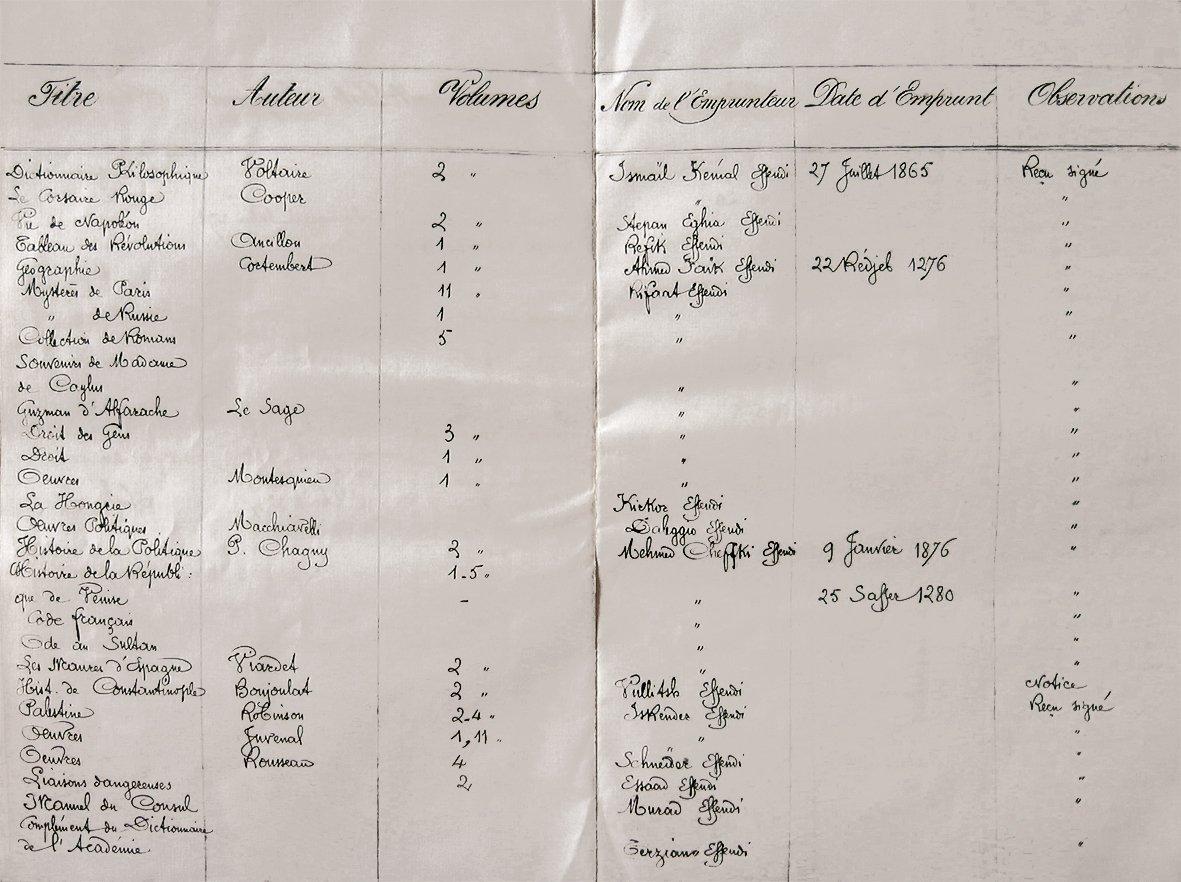 Titre Auteur Volumes Nom de l'Emprunteur Date d'Emprunt Observations
Dictionnaire Philosophique Voltaire 2 " Ismaïl Kémal Effendi 27 Juillet 1865 Reçu signé
Le Corsaire Rouge Cooper " "
Vie de Napoléon 2 " Stepan Eghia Effendi "
Tableau des Révolutions Ancillon 1 " Refik Effendi "
Géographie Cortembert 1 " Ahmed Faik Effendi 22 Rédjeb 1276 "
Mystères de Paris 11 " Rifaat Effendi "
" de Russie 1 " "
Collection de Romans 5 " "
Souvenirs de Madame
de Caylus " "
Guzman d'Alfarache Le Sage " "
Droit des Gens 3 " " "
Droit 1 " " "
Oeuvres Montesquieu 1 " " "
La Hongrie Kirkor Effendi "
Oeuvres Politiques Macchiavelli Effendi "
Histoire de la Politique P. Chagny 2 " Mehmed Effendi 9 Janvier 1876 "
Histoire de la Républi: 1-5 "
que de Venise - " 25 Saffer 1280 "
Code français " "
Ode au Sultan "
Les Maures d'Espagne Viardet 2 " " "
Hist. de Constantinople Boujoulat 2 " Vullitsh Effendi Notice
Palestine Robinson 2-4 " Iskender Effendi Reçu signé
Oeuvres Juvenal 1,11 " " "
Oeuvres Rousseau 4 Schneider Effendi "
Liaisons dangereuses 2 Essaad Effendi "
Manuel du Consul Murad Effendi "
Complément du Dictionnaire
de l'Académie Terziano Effendi "